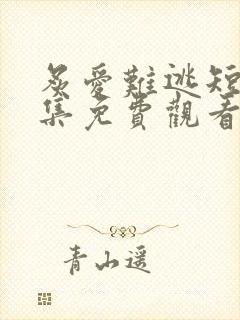 炙愛難逃短
集免費觀看
青山遥